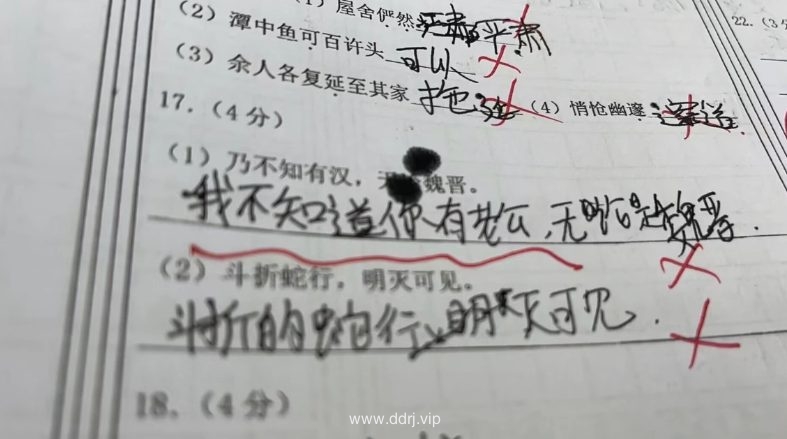 (1) 屋舍俨然
22. (3
(2) 潭中鱼可百许头 可以
(3) 余人各复延至其家 拖
(4) 悄怆幽邃
17. (4分)
(1) 乃不知有汉，无 魏晋。
我不知道你有老公，无 是魏晋.
(2) 斗折蛇行，明灭可见。
斗折的蛇行，明天可见.
18. (4分)
www.ddrj.vip